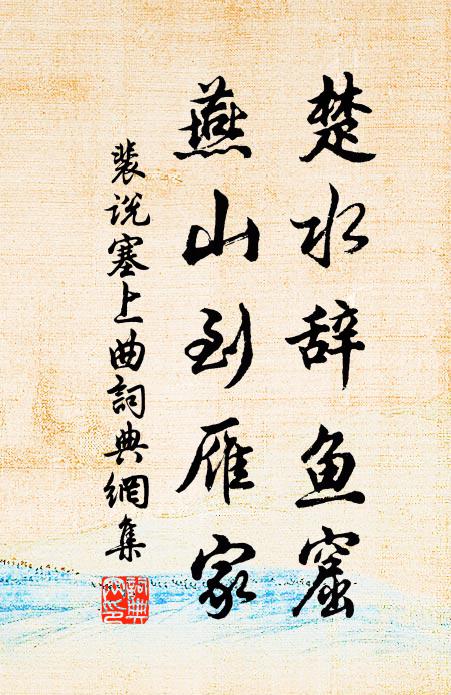 楚水辞鱼窟
燕山到雁家
裴说塞上曲詞典網集